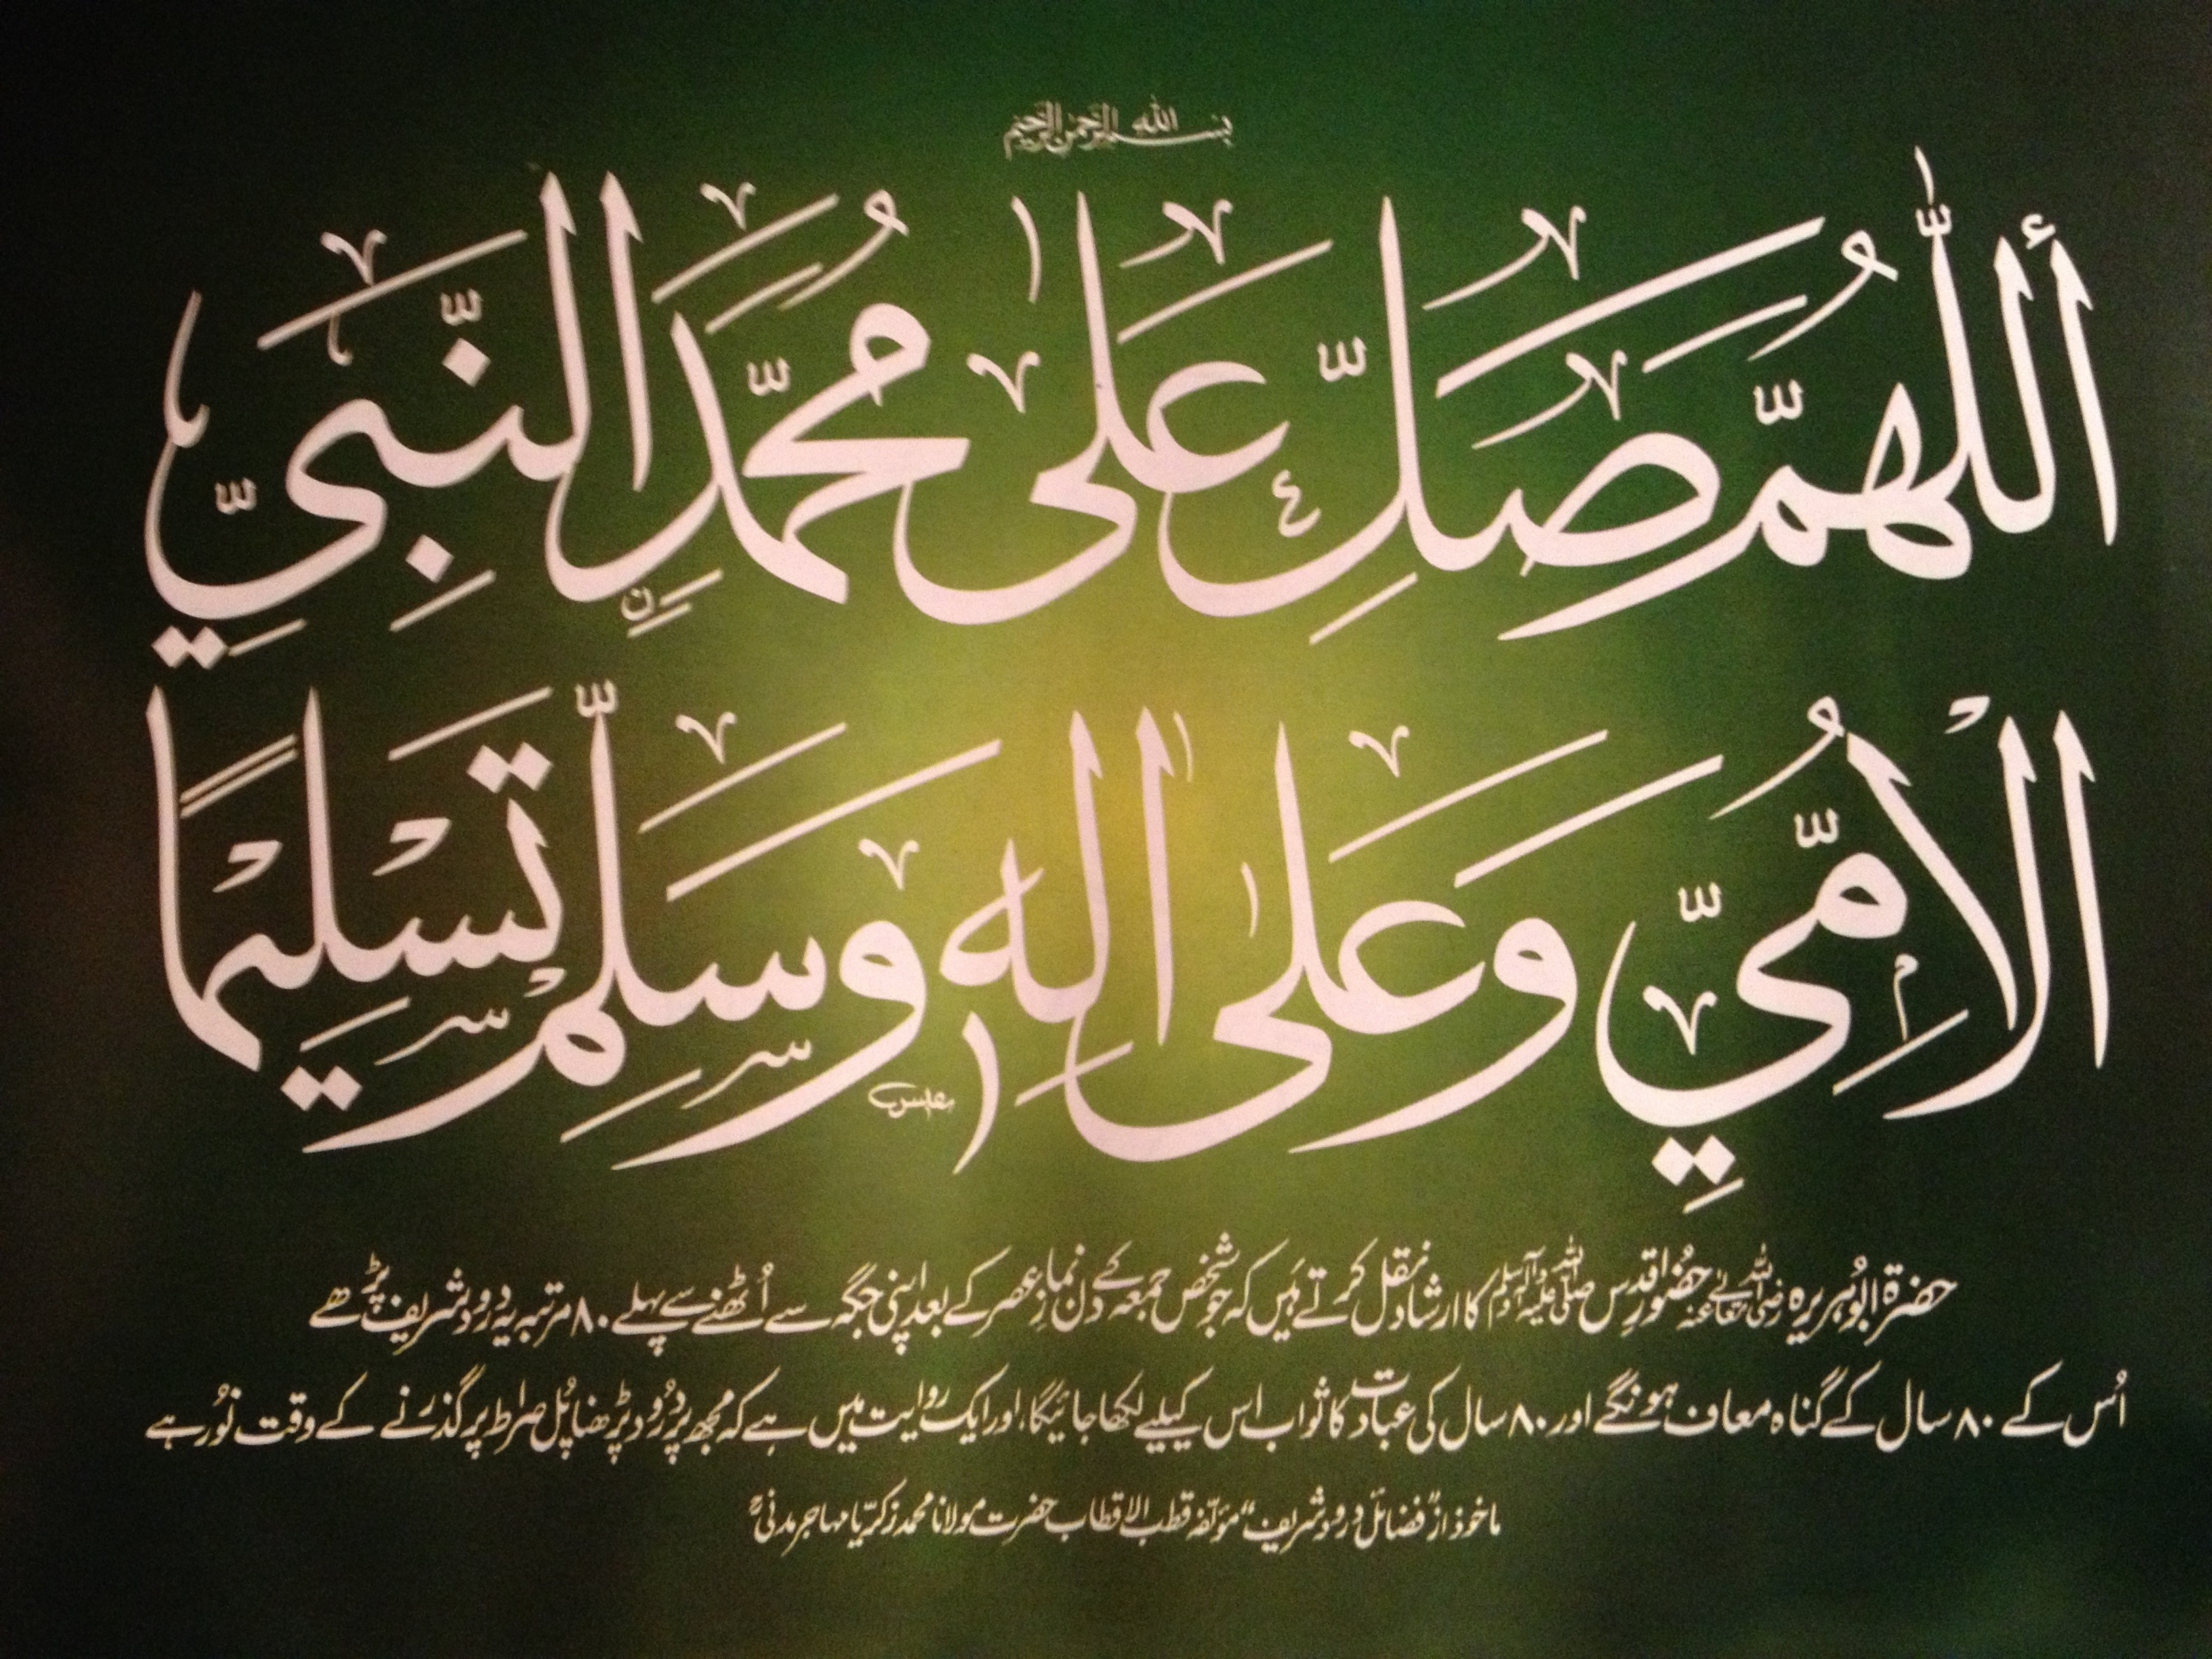 بسم الله الرحمن الرحيم
أَللّٰهُمَّ صَلِّ عَلٰى مُحَمَّدِنِ النَّبِيِّ
الْاُمِّيِّ وَعَلٰى اٰلِهٖ وَسَلِّمْ تَسْلِيْمًا
حضرۃ ابوُہریرہ رضی اللہ تعالیٰ عنہ حضُورِ اقدس صلی اللہ علیہ وآلہ وسلم کا ارشاد نقل کرتے ہیں کہ جو شخص جمعہ کے دن نمازِ عصر کے بعد اپنی جگہ سے اُٹھنے سے پہلے ۸۰ مرتبہ یہ درود شریف پڑھے
اُس کے ۸۰ سال کے گناہ معاف ہونگے اور ۸۰ سال کی عبادت کا ثواب اس کیلیے لکھا جائیگا، اور ایک روایت میں ہے کہ مجھ پر درُود پڑھنا پُل صراط پر گذرنے کے وقت نوُر ہے
ماخوذ از "فضائل درود شریف" مؤلفہ قطب الاقطاب حضرت مولانا محمد زکریّا مہاجر مدنیؒ